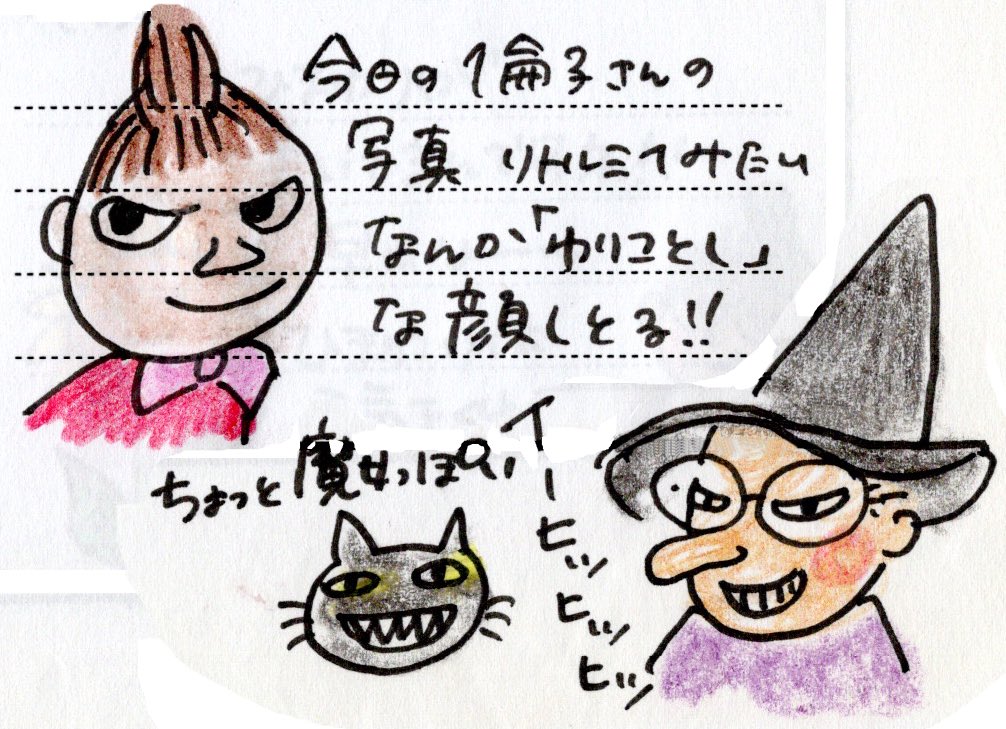 今日の倫子さんの
写真 リトルミイみたい
なんか「わりコとし」
な顔しとる!!
ちょっと魔女っぽい
イーヒッヒッヒッ